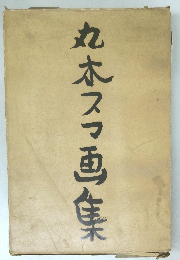 丸木スマ画集